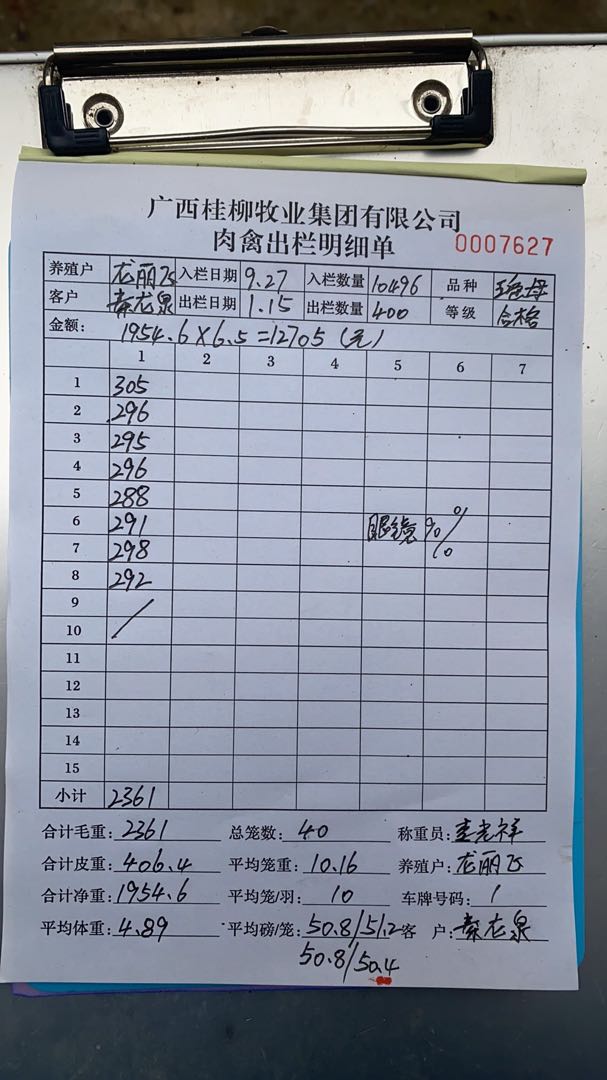 广西桂柳牧业集团有限公司
肉禽出栏明细单 0007627
养殖户 龙丽飞 入栏日期 9.27 入栏数量 10496 品种
客户 秦龙泉 出栏日期 1.15 出栏数量 400 等级 合格
金额: 1954.6×6.5=12705(元)
1 2 3 4 5 6 7
1 305
2 296
3 295
4 296
5 288
6 291 眼镜 %
7 298
8 292
9
10
11
12
13
14
15
小计 2361
合计毛重: 2361 总笼数: 40 称重员:
合计皮重: 406.4 平均笼重: 10.16 养殖户: 龙丽飞
合计净重: 1954.6 平均笼/羽: 10 车牌号码: 1
平均体重: 4.89 平均磅/笼: 50.8/51.2 客 户: 秦龙泉
50.8/50.4